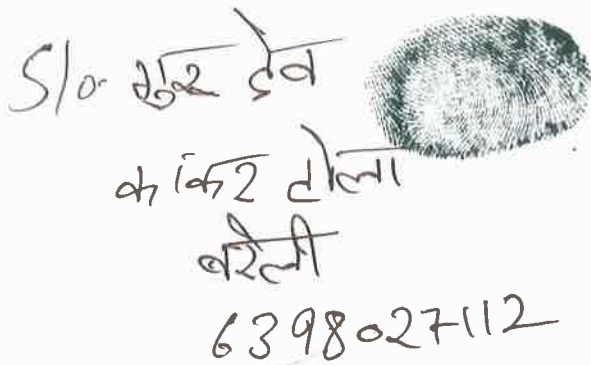 S/o गुर देव
कांकर टोला
बरेली
6398027112